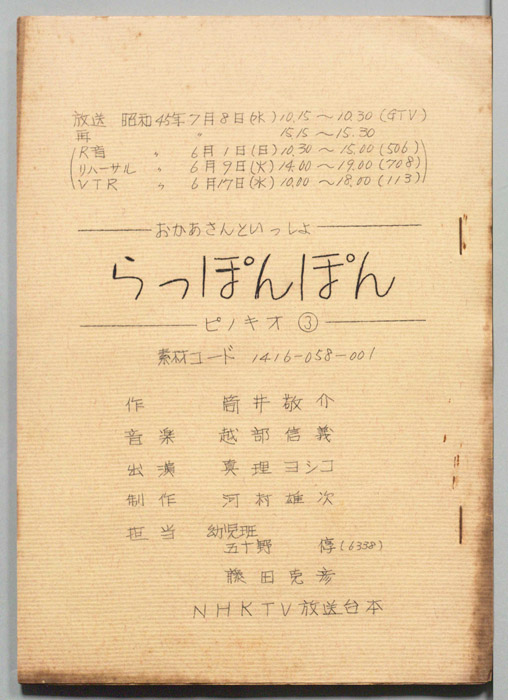 放送 昭和45年7月8日(水)10.15～10.30(GTV)
再 〃 15.15～15.30
R音 〃 6月1日(日)10.30～15.00(506)
リハーサル 〃 6月9日(火)14.00～19.00(708)
VTR 〃 6月17日(水)10.00～18.00(113)
おかあさんといっしょ
らっぽんぽん
ピノキオ ③
素材コード 1416-058-001
作 筒井敬介
音楽 越部信義
出演 真理ヨシコ
制作 河村雄次
担当 幼児班
五十野 惇(6338)
藤田克彦
NHKTV放送台本